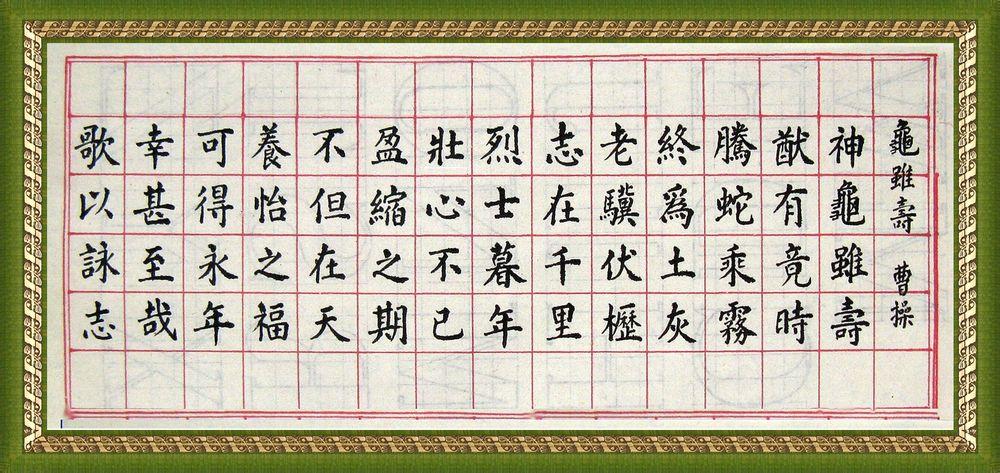 龜雖壽 曹操
神龜雖壽
猷有竟時
騰蛇乘霧
終爲土灰
老驥伏櫪
志在千里
烈士暮年
壯心不已
盈縮之期
不但在天
養怡之福
可得永年
幸甚至哉
歌以詠志